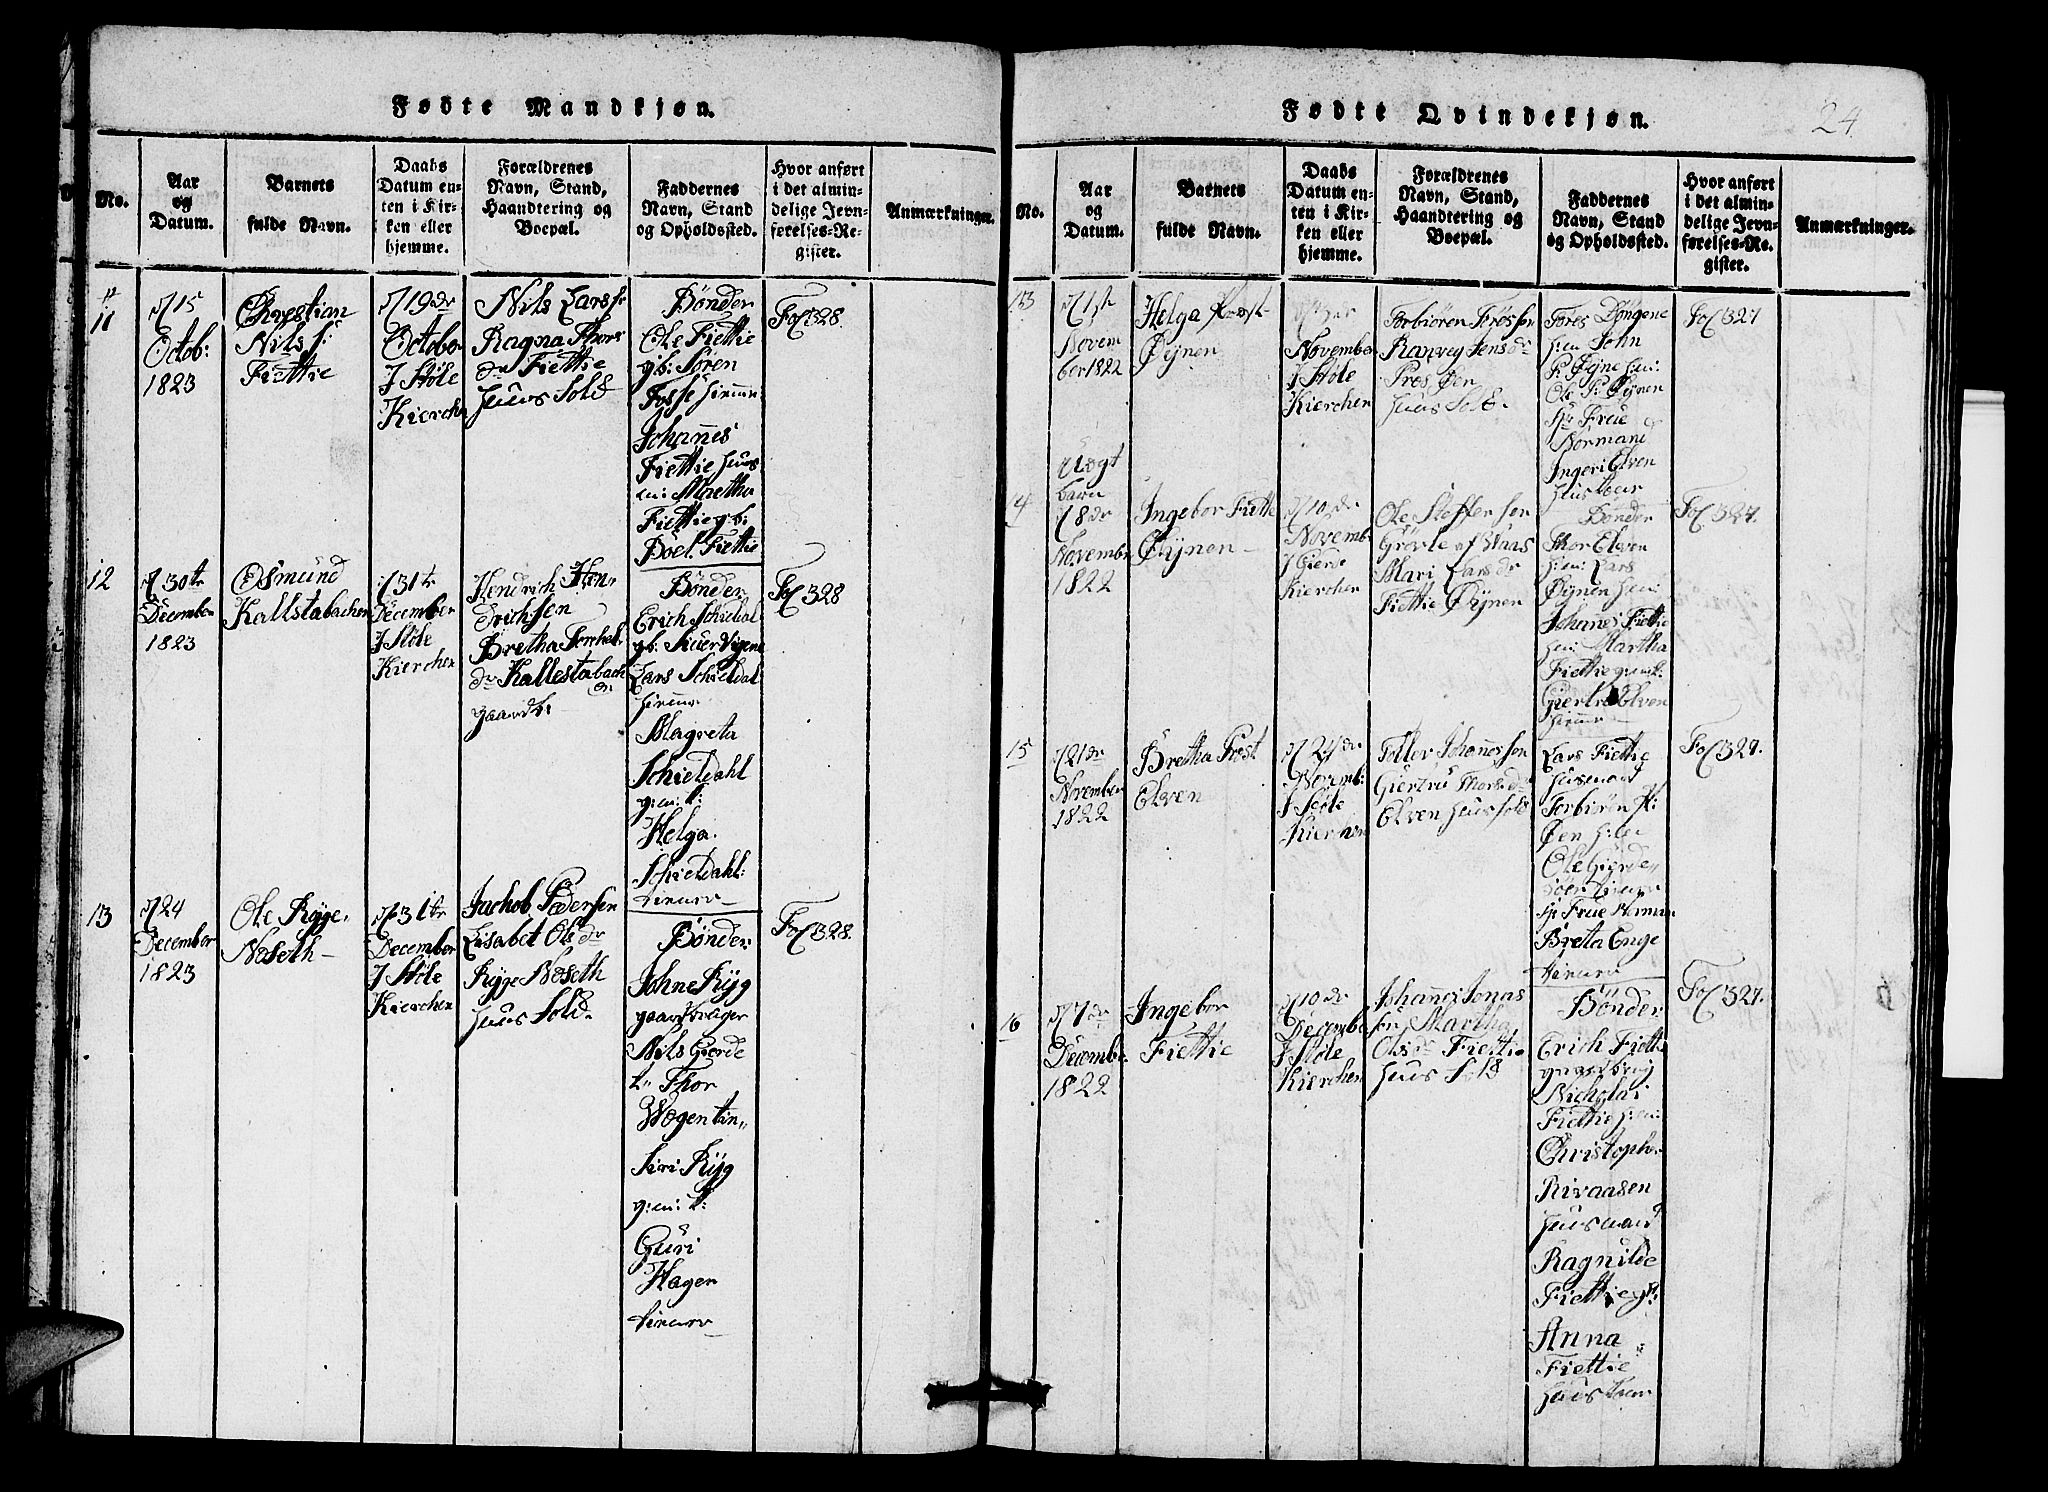 Fødte Mandkjøn.
No.
Aar
og
Datum.
Barnets
fulde Navn.
Daabs
Datum en-
ten i Kir-
ken eller
hjemme.
Forældrenes
Navn, Stand,
Haandtering og
Boepæl.
Faddernes
Navn, Stand
og Opholdssted.
Hvor anført
i det almin-
delige Jevn-
førelses-Re-
gister.
Anmærkninger.
11
15
Octob:
1823
Christian
Nils s:
Fiettie
19de
Octobo
J Støle
Kierchen
Nils Lars s:
Ragna Thors
dr Fiettie
huus Sold
Bønder
Ole Fiettie
gb: Søren
Fosse
Johannes
Fiettie huus
m: Martha
Fiettie gb:
Boel Fiettie
Fol 328.
12
30te
December
1823
Osmund
Kallstabachen
31te
December
J Støle
Kierchen
Hendrich Hen,
drichsen
Bretha
dr Kallestabach
en
gaardb:
Bønder
Erich Schieldal
gb: Siuer Vigene
Lars Schieldal
Magreta
Schieldahl
g:m: k:
Helga
Schieldahl:
Fol 328
13
24
December
1823
Ole Rygge,
Næseth
31te
December
J Støle
Kierchen
Jachob Pedersen
Lisabet Ols dr
Rygge Næseth
huus Sold.
Bønder
Johne Ryg
gaardbruger
Nils Gierde
Thor
Wogentin,,
Siri Ryg
g:m: k:
Guri
Hagen
Fol 328.
Fødte Qvindekjøn.
24
No.
Aar
og
Datum.
Barnets
fulde Navn.
Daabs
Datum en-
ten i Kir-
ken eller
hjemme.
Forældrenes
Navn, Stand,
Haandtering og
Boepæl.
Faddernes
Navn, Stand
og Opholdssted.
Hvor anført
i det almin-
delige Jevn-
førelses-Re-
gister.
Anmærkninger.
13
1st
Novem
ber 1822
Helga
Øynen
November
J Støle
Kierchen
Torbiøren Frøssøn
Ranvey Jens dr
Øen
huus Sold.
Tores
John
P: Øyne
Ole P: Øynen
Frue
Normand
Ingeri Elven
Fol 327
14
Uægt
barn
8de
November
1822
Ingebor Fiette
Øynen
10de
Novemb
J Gierde
Kierchen
Ole Steffensøn
Grovle af Waas
Mari Lars dr
Fiettie Øynen
Bønder
Thor Elven
Lars
Øynen
Johannes Fiettie
Martha
Fiettie
Giertru Elven
Fol 327.
15
21de
November
1822
Bretha Frost
Elven
24de
Novemb:
J Støle
Kierchen
Toller Johannessøn
Giertru Thorsd
Elven huus Sold
Lars Fiettie
husmand
Torbiøren P:
Øen
Ole Gierde,,
Frue Norman
Breta Enge
Fol 327.
16
7de
Decembr.
1822
Ingebor
Fiettie
10de
Decembr
J Støle
Kierchen
Johannes Jonas
sn Martha
Ols dr Fiettie
huus Sold
Bønder
Erich Fiette
gaardbrug
Nicholai
Fiettie
Christopher
Rivaasen
huusmand
Ragnilde
Fiettie gk:
Anna
Fiettie
Fol 327.